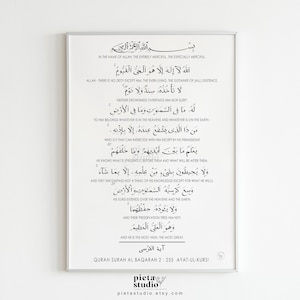 بسم الله الرحمن الرحيم
IN THE NAME OF ALLAH, THE ENTIRELY MERCIFUL, THE ESPECIALLY MERCIFUL
الله لا إله إلا هو الحي القيوم
ALLAH - THERE IS NO DEITY EXCEPT HIM, THE EVER-LIVING, THE SUSTAINER OF [ALL] EXISTENCE.
لا تأخذه سنة ولا نوم
NEITHER DROWSINESS OVERTAKES HIM NOR SLEEP.
له ما في السموت وما في الأرض
TO HIM BELONGS WHATEVER IS IN THE HEAVENS AND WHATEVER IS ON THE EARTH.
من ذا الذى يشفع عنده إلا بإذنه
WHO IS IT THAT CAN INTERCEDE WITH HIM EXCEPT BY HIS PERMISSION?
يعلم ما بين أيديهم وما خلفهم
HE KNOWS WHAT IS BEFORE THEM AND WHAT WILL BE AFTER THEM,
ولا يحيطون بشىء من علمه إلا بما شاء
AND THEY ENCOMPASS NOT A THING OF HIS KNOWLEDGE EXCEPT FOR WHAT HE WILLS.
وسع كرسيه السموت والأرض
HIS KURSI EXTENDS OVER THE HEAVENS AND THE EARTH,
ولا يئوده حفظهما
AND THEIR PRESERVATION TIRES HIM NOT.
وهو العلى العظيم
AND HE IS THE MOST HIGH, THE MOST GREAT.
آية الكرسي
QURAN SURAH AL BAQARAH 2 : 255 AYAT-UL-KURSI
pieta
studio
pietastudio.etsy.com